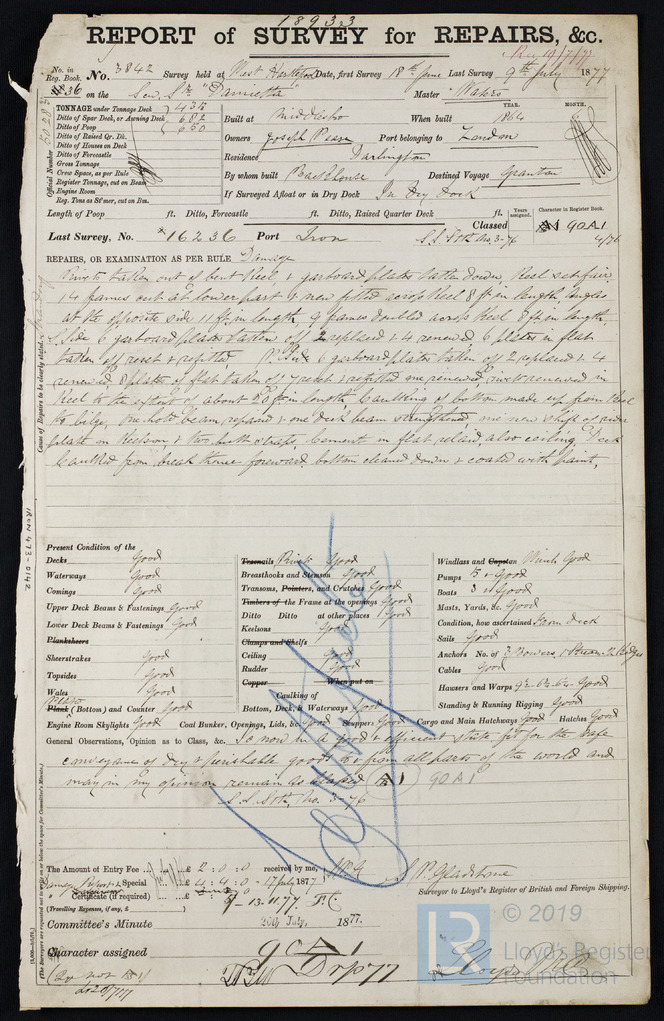 18933
REPORT of SURVEY for REPAIRS, &c.
Rec 19/7/77
No. in Reg. Book. No. 3842 Survey held at West Hartlepool Date, first Survey 18th June Last Survey 9th July 1877
36 on the Scw Sr "Damietta" Master Waters
TONNAGE under Tonnage Deck 435
Ditto of Spar Deck, or Awning Deck 682
Ditto of Poop 650
Ditto of Raised Qr. Dk.
Ditto of Houses on Deck
Ditto of Forecastle
Gross Tonnage
Crew Space, as per Rule
Register Tonnage, cut on Beam
Engine Room
Reg. Tons as St'mer, cut on Bm.
Official Number 50283
Built at Middlesbro When built YEAR. 1864 MONTH. 6
Owners Joseph Pease Port belonging to London
Residence Darlington
By whom built Backhouse Destined Voyage Granton
If Surveyed Afloat or in Dry Dock In Dry Dock
Length of Poop ft. Ditto, Forecastle ft. Ditto, Raised Quarter Deck ft.
Years assigned. Character in Register Book.
Classed A1 90A1
Last Survey, No. 16236 Port Iron S.S. Sth No. 3-76 4/76
REPAIRS, OR EXAMINATION AS PER RULE Damage
Cause of Repairs to be clearly stated.
Rivets taken out of bent keel, & garboard plates taken down, keel set fair
14 frames cut at lower part & new fitted across keel 8 ft in length, angles
at the opposite side 11 ft in length 9 frames doubled across keel 8 ft in length
S. Side 6 garboard plates taken off 2 replaced & 4 renewed 6 plates in flat
taken off reset & refitted P. Side 6 garboard plates taken off 2 replaced & 4
renewed, 8 plates of flat taken off 7 reset & refitted one renewed, rivets renewed in
keel to the extent of about 80 ft in length caulking of bottom made up from keel
to bilge, one hold beam repaired & one deck beam strengthened, one new
plate on keelson & two butt straps cement in flat relaid, also ceiling, Deck
caulked from break thence forward, bottom cleaned down & coated with paint,
IRON 473-0142
Present Condition of the
Decks Good
Waterways Good
Comings Good
Upper Deck Beams & Fastenings Good
Lower Deck Beams & Fastenings Good
Planksheers
Sheerstrakes Good
Topsides Good
Wales Good
Plank (Bottom) and Counter Good
Engine Room Skylights Good Coal Bunker, Openings, Lids, &c. Good Scuppers Good Cargo and Main Hatchways Good Hatches Good
Treenails Rivets Good
Breasthooks and Stemson Good
Transoms, Pointers, and Crutches Good
Timbers of the Frame at the openings Good
Ditto Ditto at other places Good
Keelsons Good
Clamps and Shelfs
Ceiling Good
Rudder Good
Copper When put on
Caulking of
Bottom, Deck, & Waterways Good
Windlass and Capstan Winch Good
Pumps 5 Good
Boats 3 Good
Masts, Yards, &c. Good
Condition, how ascertained From Deck
Sails Good
Anchors No. of 3 Bowers, 1 Stream 2 Kedges
Cables Good
Hawsers and Warps Good
Standing & Running Rigging Good
General Observations, Opinion as to Class, &c. Is now in a good & efficient state fit for the safe
conveyance of dry & perishable goods to & from all parts of the world and
may in my opinion remain as classed A1 90A1
S.S. Sth, No. 3-76
(The Surveyors are requested not to write on or below the space for Committee's Minute.)
The Amount of Entry Fee £ 2 : 0 : 0 received by me,
Damage Report & Special £ 4 : 4 : 0 17 July 1877
Certificate (if required)
(Travelling Expenses, if any, £ )
13.11.77
S P Gladstone
Surveyor to Lloyd's Register of British and Foreign Shipping.
Committee's Minute 20th July, 1877.
Character assigned 90A1
Lloyds
© 2019
Lloyd's Register
Foundation